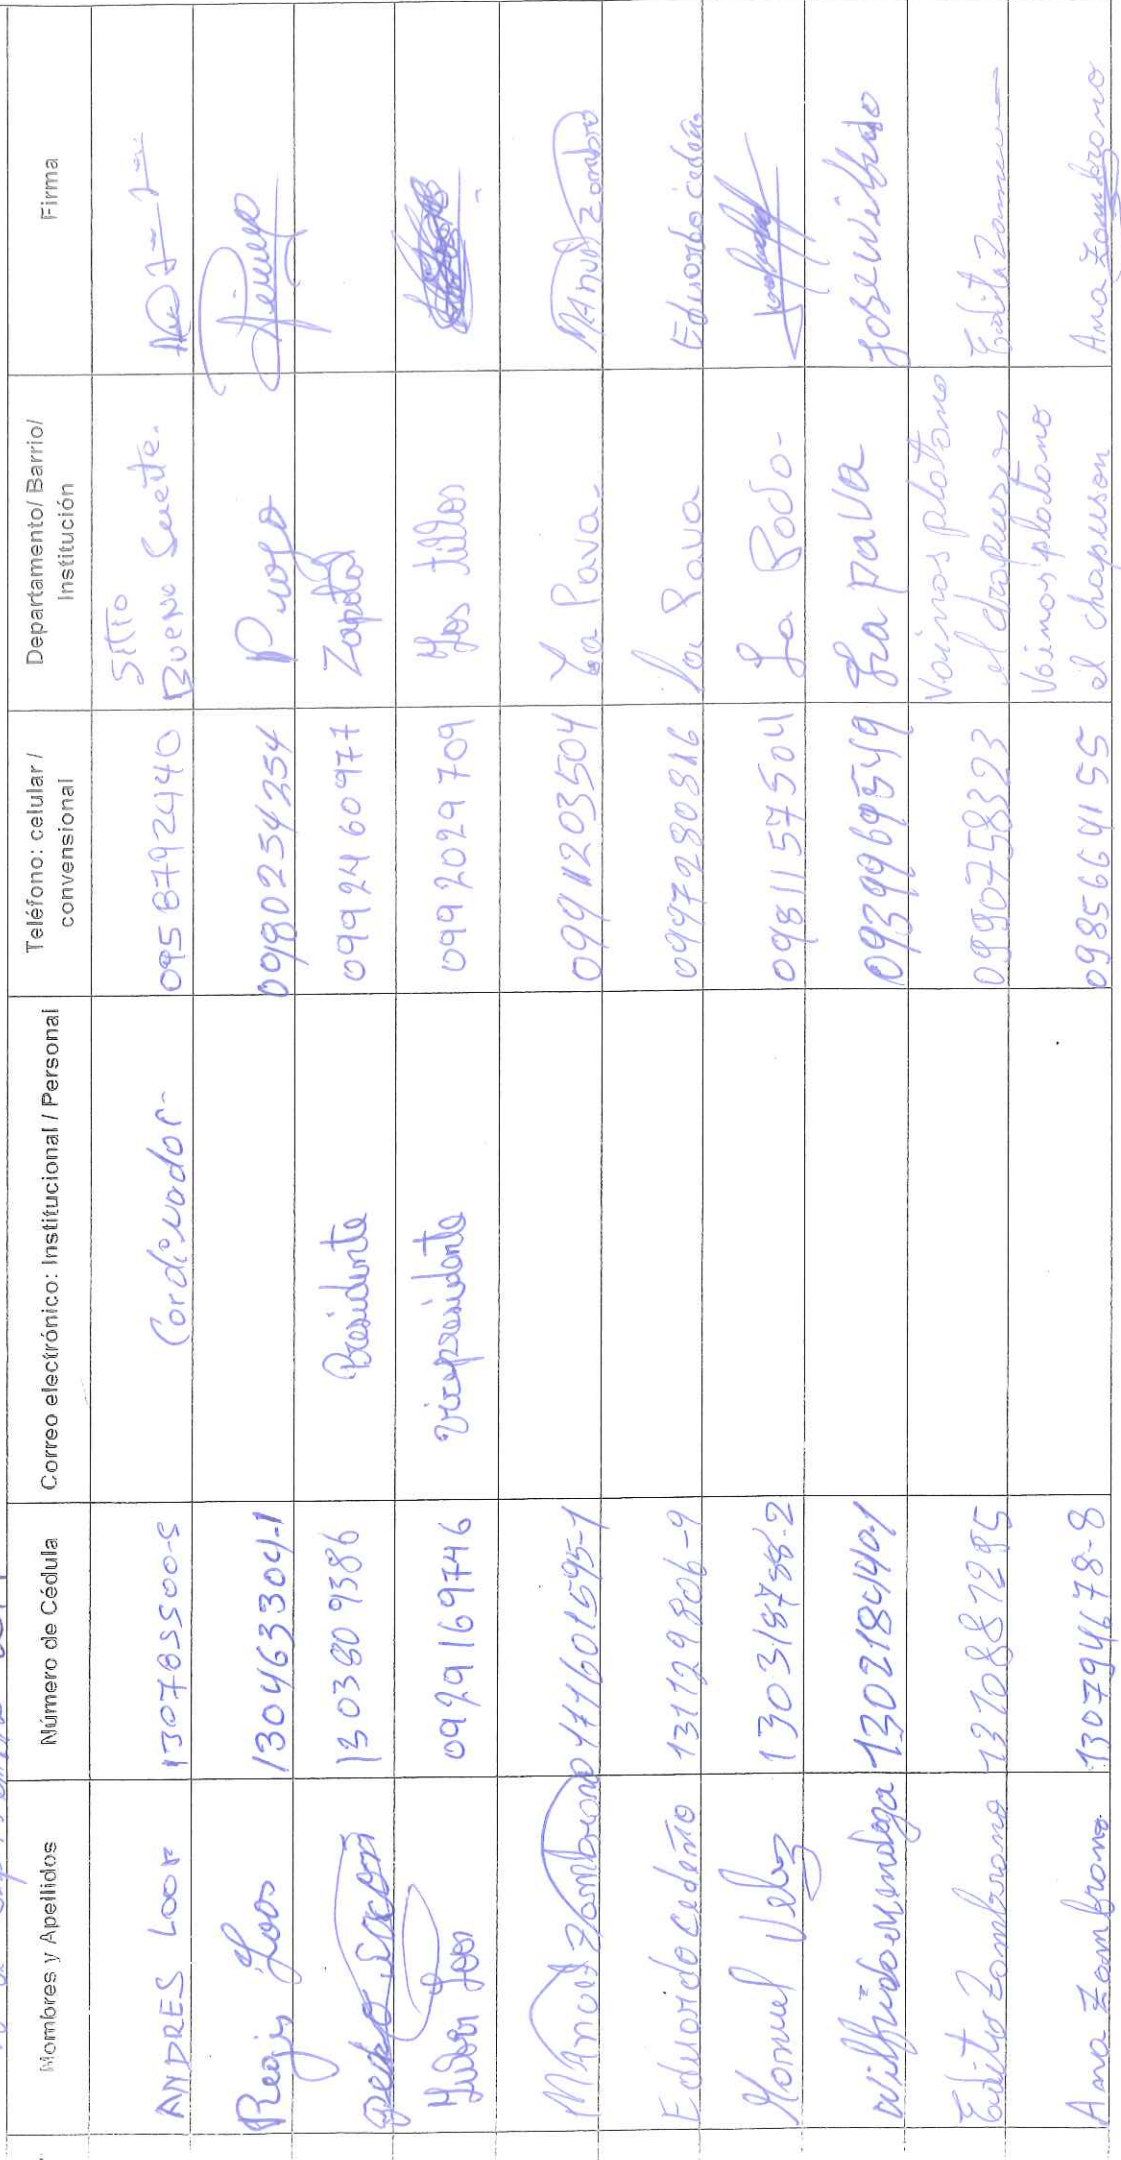 Nombres y Apellidos
Número de Cédula
Correo electrónico: Institucional / Personal
Teléfono: celular /
convensional
Departamento/ Barrio/
Institución
Firma
ANDRES LOOR
130783500-5
Cordinador-
0958792440
SITIO
BUENO Suerte.
Regis Loor
130463304-1
0980254254
0929169746
Presidente
0992460977
Zapotal
1303809386
vicepresidente
0992029709
Los tillos
Manuel Zambrano
0991203504
La Pava
Manuel Zambrano
Eduardo cedeño
131129806-9
0997280816
La Pava
Eduardo cedeño
Manuel Velez
130318788-2
0981157504
La
Wilfrido Mendoza
130218440-1
0939969549
La pava
Jose wilfrido
Edita Zambrano
1310881295
0990758323
platano
el
Edita Zam
Ana Zambrano
130794678-8
0985664155
platano
el chapuson
Ana Zambrano